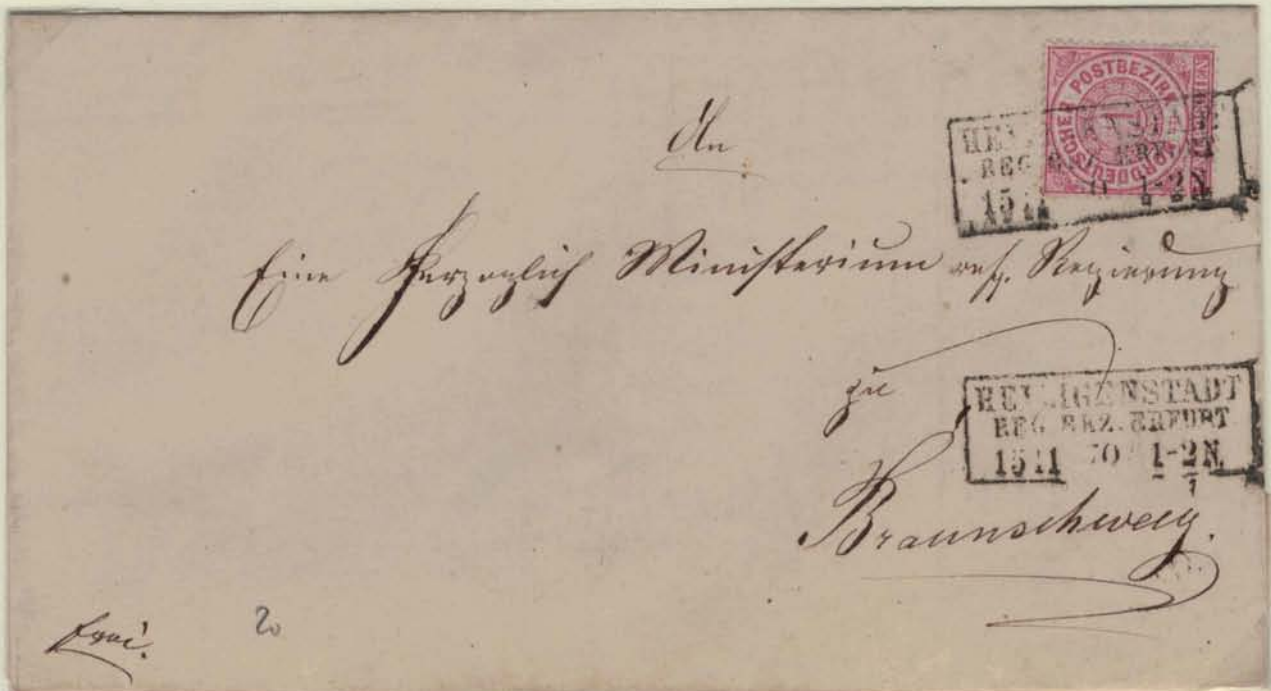 NORDDEUTSCHER POSTBEZIRK
HEILIGENSTADT
REG. BEZ. ERFURT
15 11 70 1-2 N.
An
Eine Herzoglich Ministerium resp. Regierung
zu
HEILIGENSTADT
REG. BEZ. ERFURT
15 11 70 1-2 N.
Braunschweig.
frei.
20